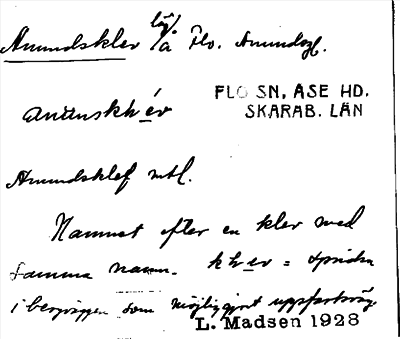 Amundsklev läg. å Flo. Amundsgl.
FLO SN, ÅSE HD.
SKARAB. LÄN
Amundsklef mtl.
Namnet efter en klev med
samma namn. klev =
i bergväggen som möjliggjort uppfartsväg
L. Madsen 1928